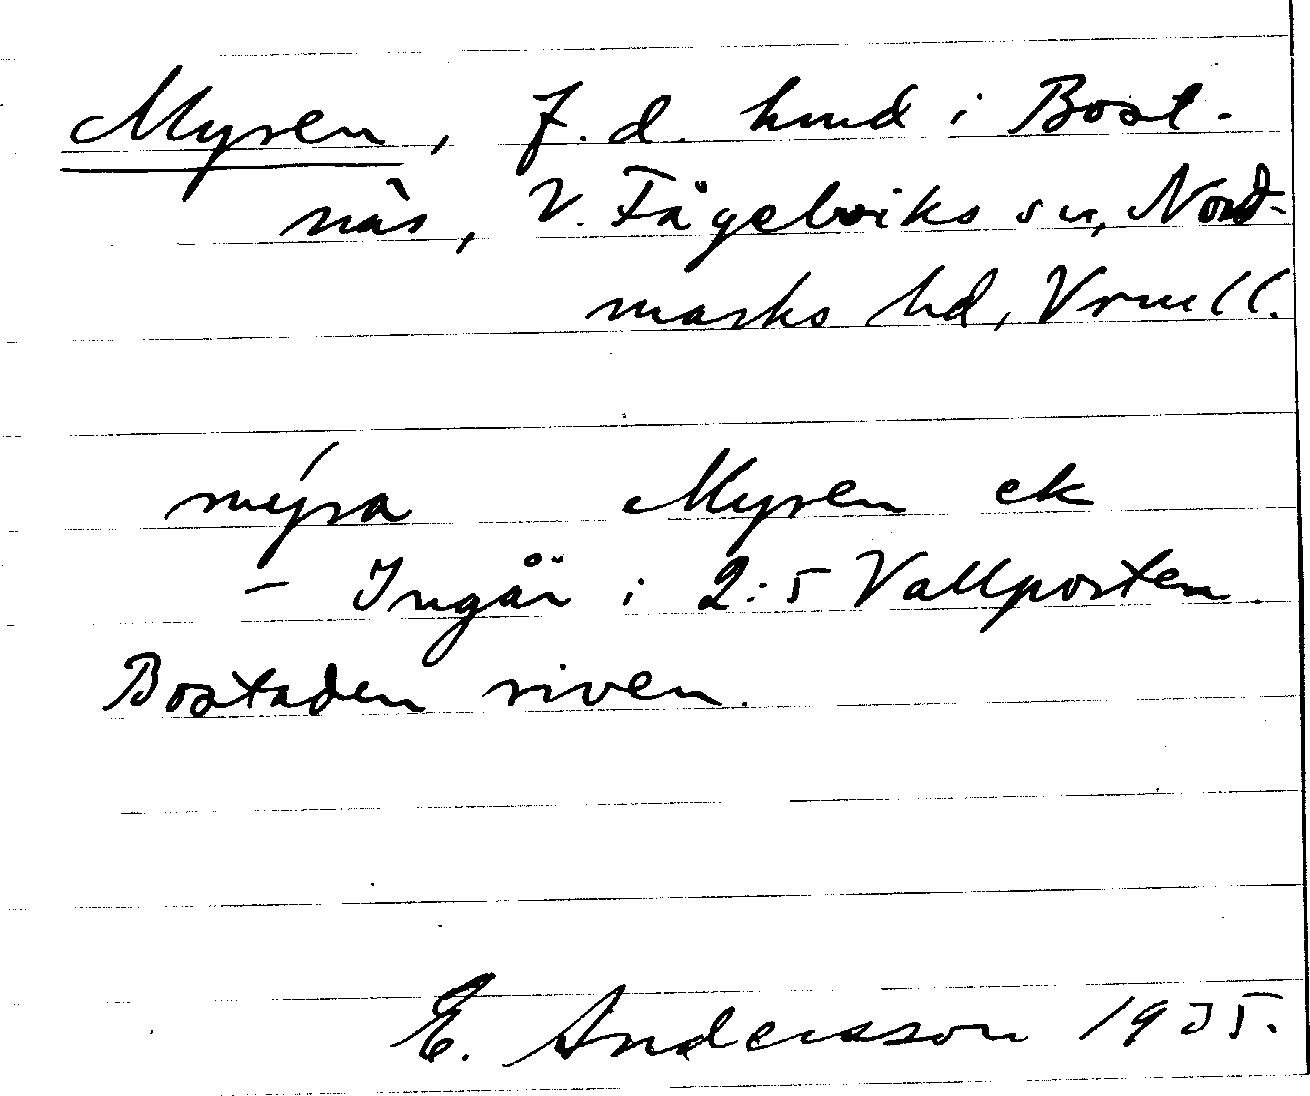 Myren, f.d. hmd i Bost-
näs, V. Fågelviks sn, Nord-
marks hd, Vrml.
mýra Myren ek
- Ingår i 2:5 Vallporten
Bostaden riven.
E. Andersson 1935.